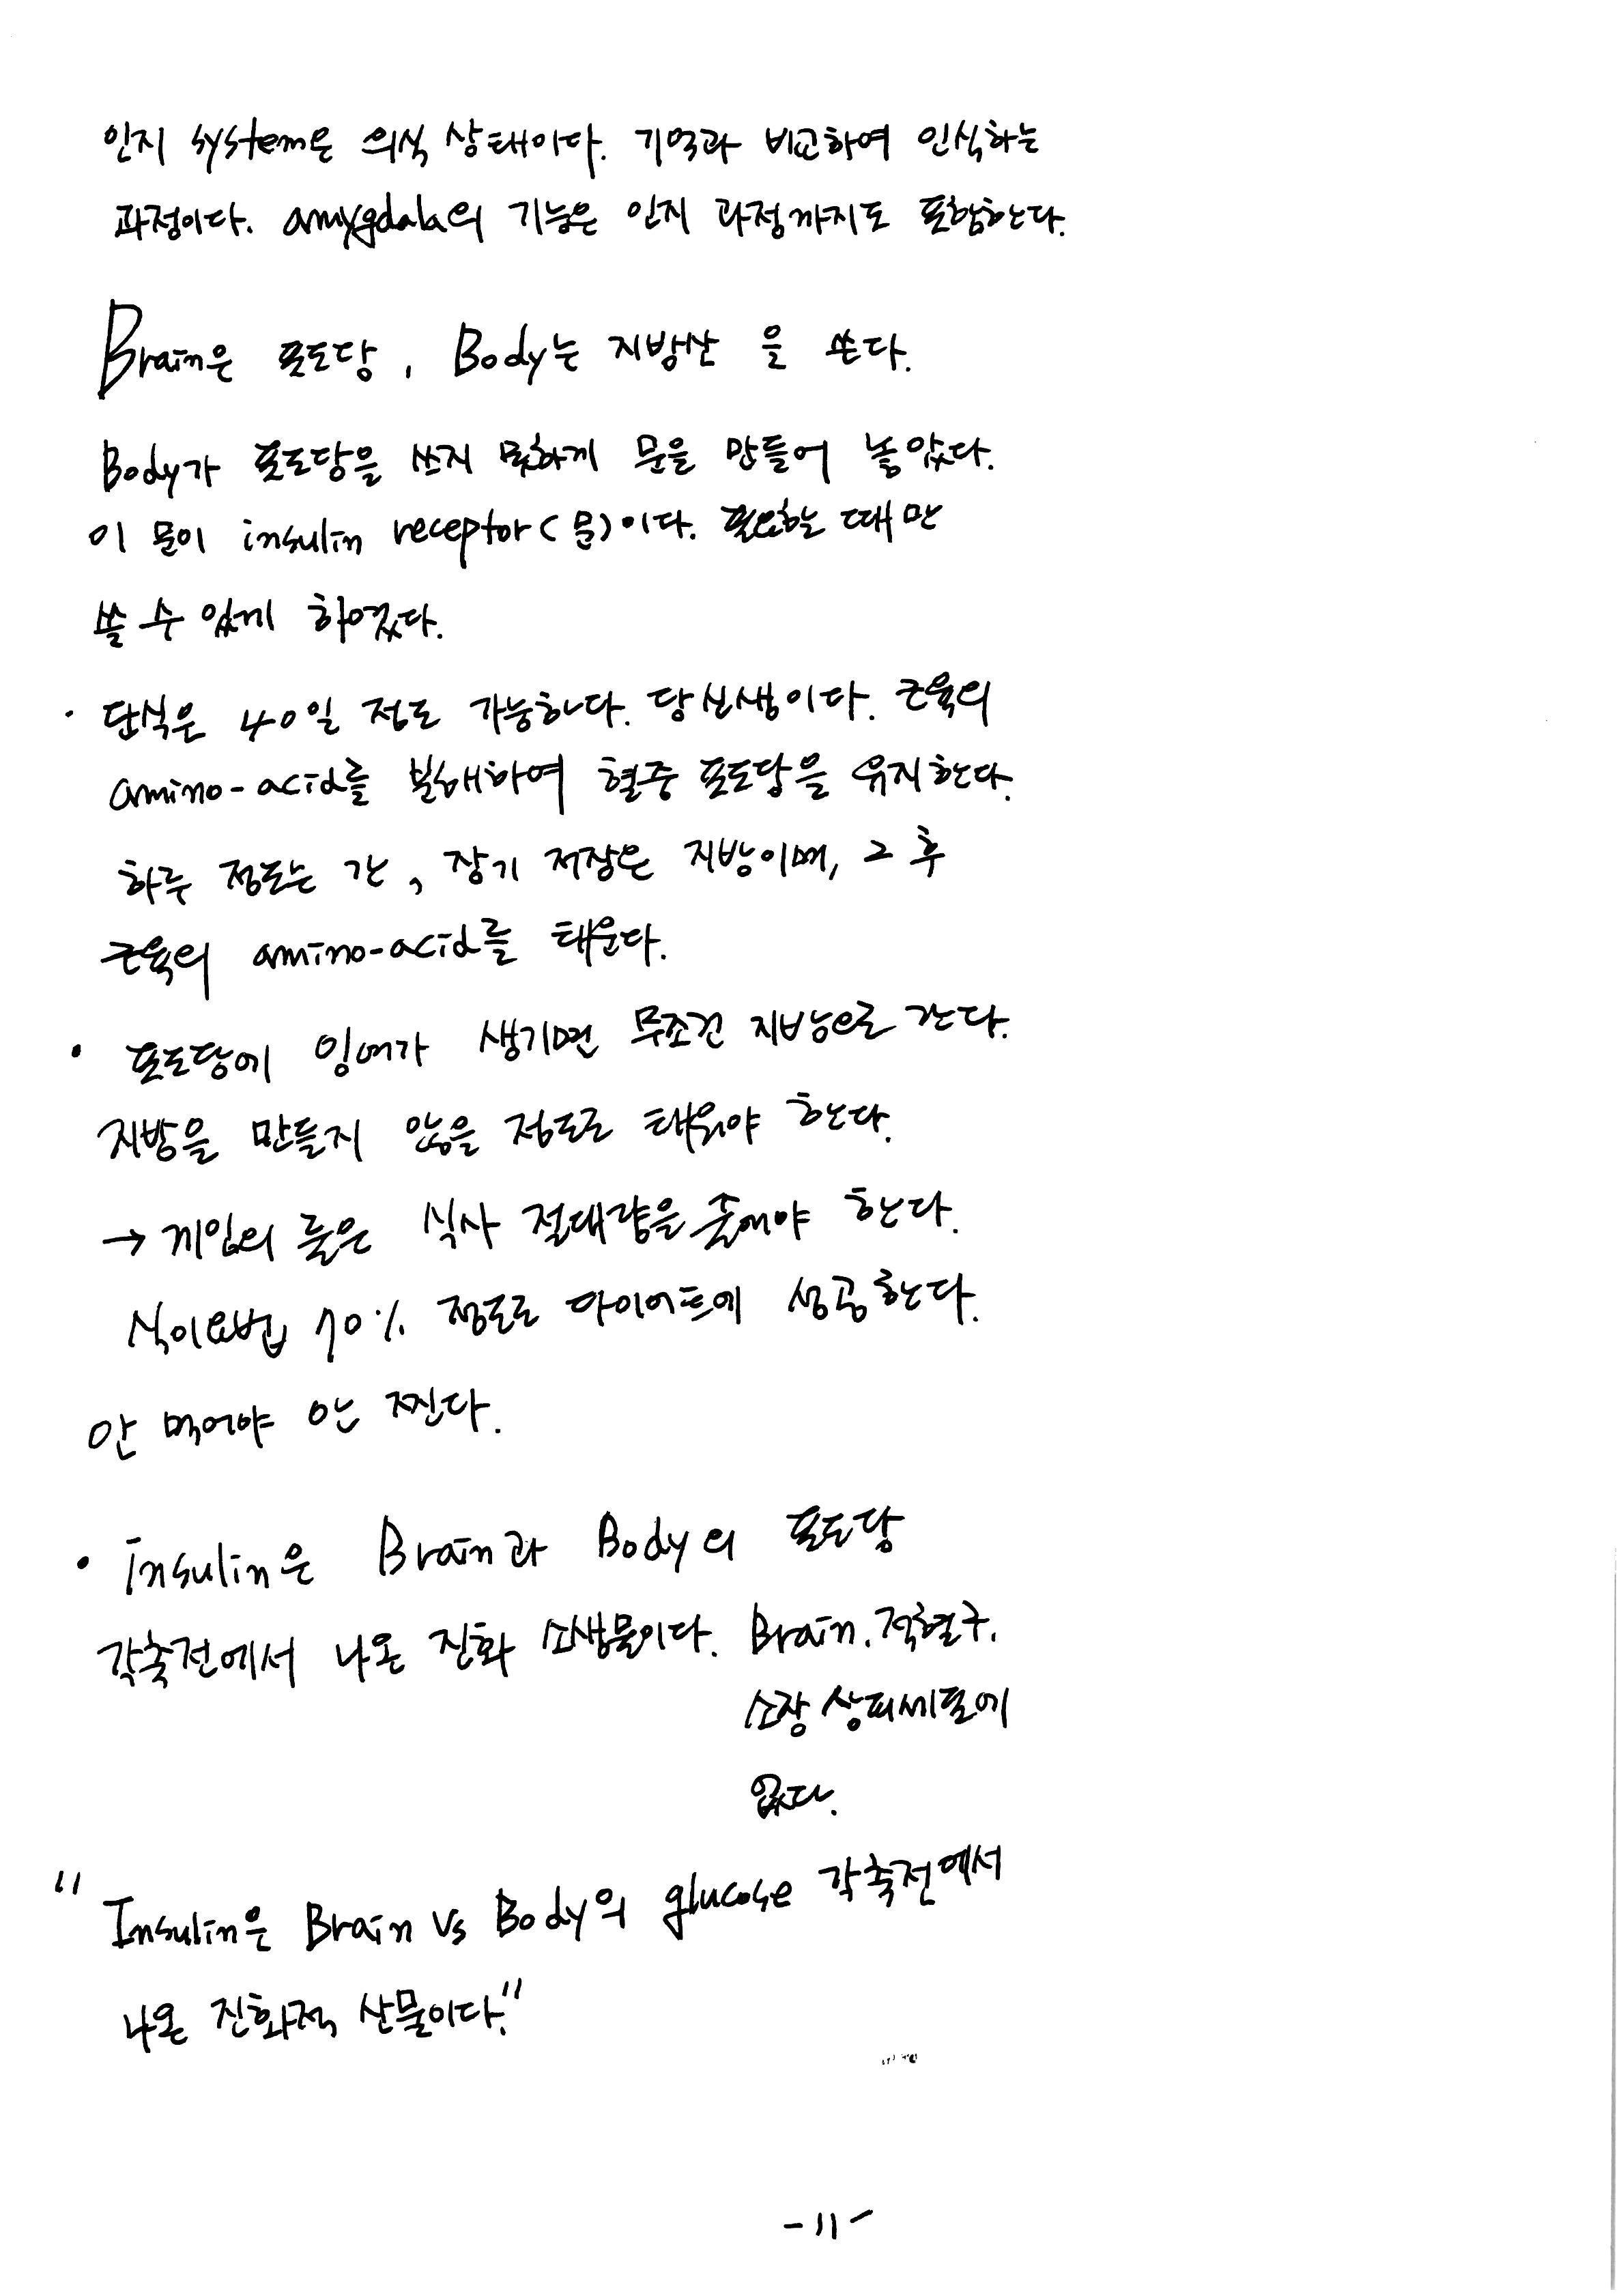 인지 system은 의식 상태이다. 기억과 비교하여 인식하는
과정이다. amygdala의 기능은 인지 과정까지도 포함한다.
Brain은 포도당, Body는 지방산을 쓴다.
Body가 포도당을 쓰지 못하게 문을 만들어 놓았다.
이 문이 insulin receptor(문)이다. 필요할 때만
쓸 수 있게 하였다.
· 단식은 40일 정도 가능하다. 당신생이다. 근육의
amino-acid를 분해하여 혈중 포도당을 유지한다.
하루 정도는 간, 장기 저장은 지방이며, 그 후
근육의 amino-acid를 태운다.
• 포도당에 잉여가 생기면 무조건 지방으로 간다.
지방을 만들지 않을 정도로 태워야 한다.
→ 게임의 룰은 식사 절대량을 줄여야 한다.
식이요법 70% 정도로 다이어트에 성공한다.
안 먹어야 안 찐다.
• Insulin은 Brain과 Body의 포도당
각축전에서 나온 진화 소생물이다. Brain, 적혈구,
소장 상피세포에
없다.
"Insulin은 Brain vs Body의 glucose 각축전에서
나온 진화적 산물이다."
-11-